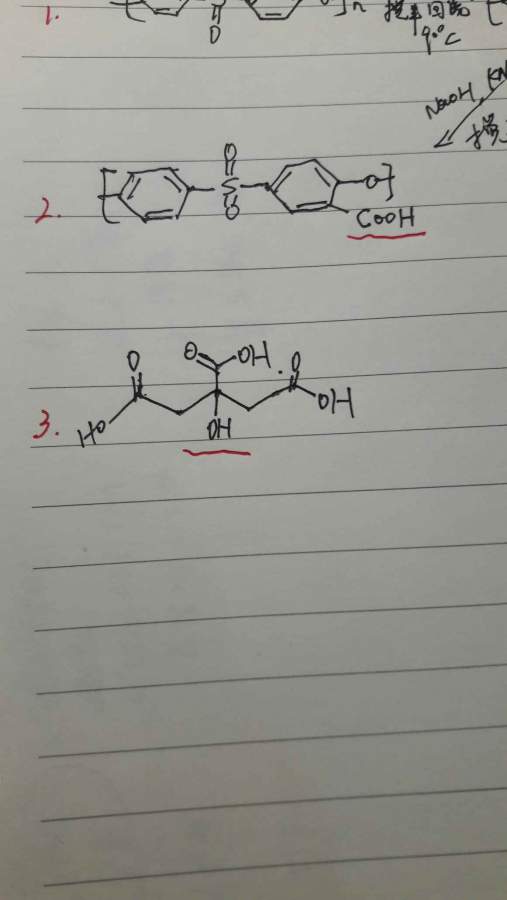 1. [ O ]n 搅拌回流
90°C
NaOH, KM
搅
2. [ O S O O ]
COOH
3. HO O O OH OH O OH